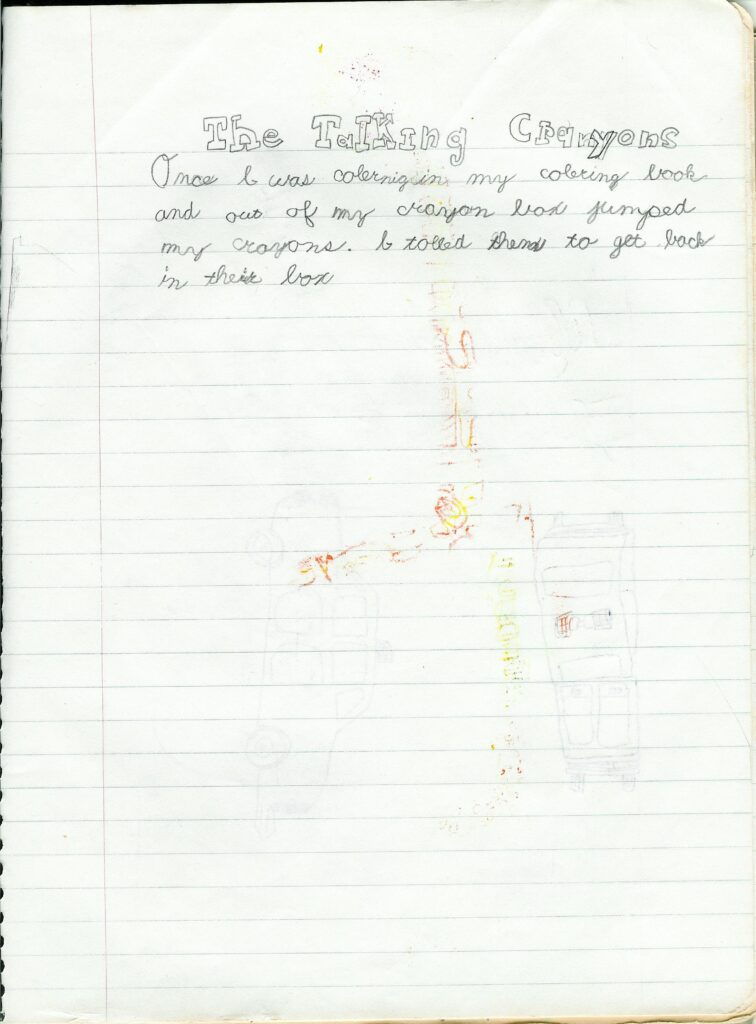 The Talking Crayons
Once I was colernig in my colering book
and out of my crayon box jumped
my crayons. I tolled them to get back
in their box